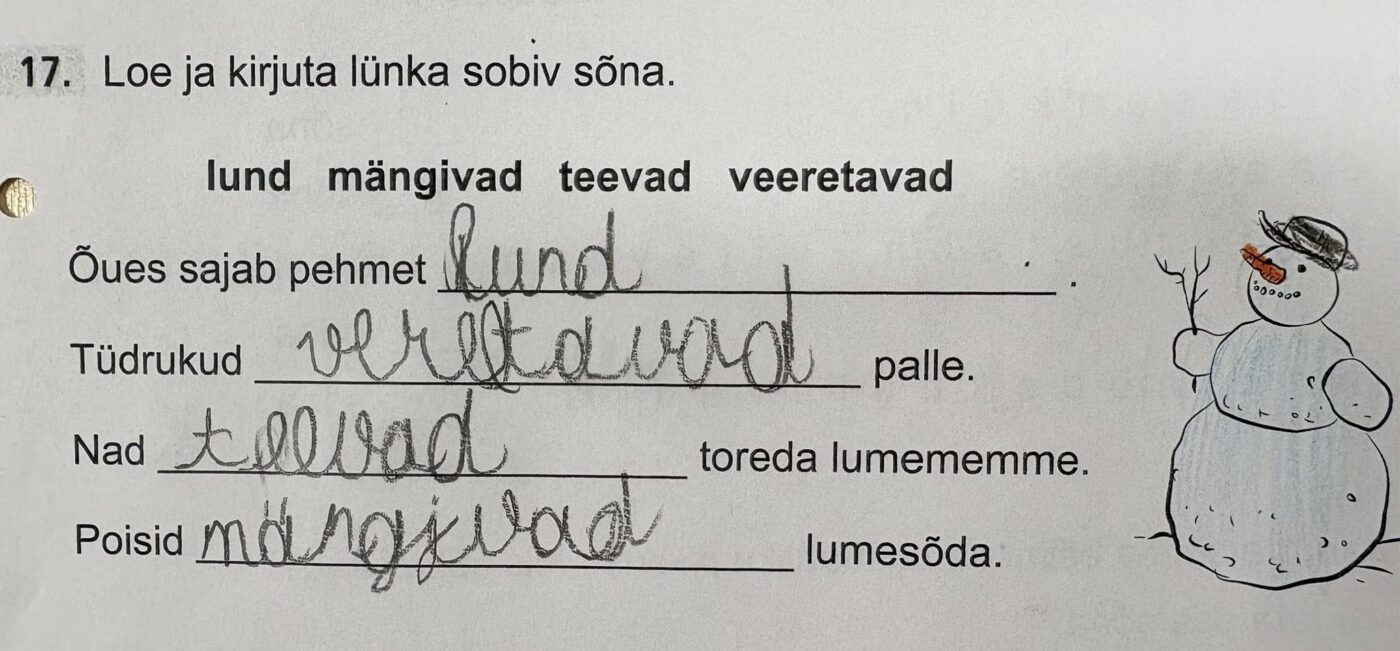 17. Loe ja kirjuta lünka sobiv sõna.
lund mängivad teevad veeretavad
Õues sajab pehmet lund.
Tüdrukud veretavad palle.
Nad teevad toreda lumememme.
Poisid mängjvad lumesõda.